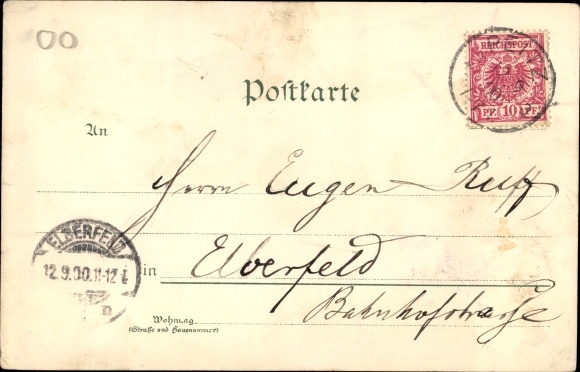 00
REICHSPOST
PF 10 PF
Postkarte
An
Herrn Eugen Ruff
ELBERFELD
12.9.00.11-12
in Elberfeld
Bahnhofstrasse
Wohnung
(Straße und Hausnummer)